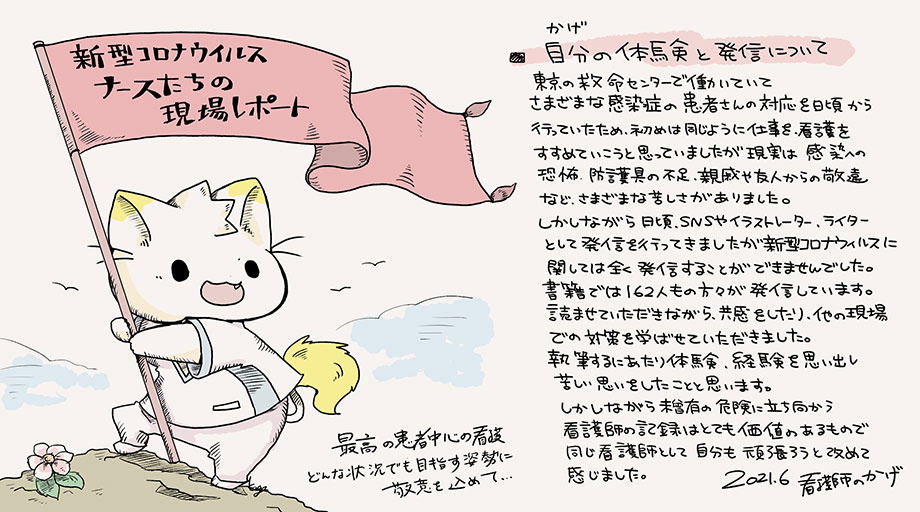 新型コロナウイルス
ナースたちの
現場レポート
かげ
自分の体験と発信について
東京の救命センターで働いていて
さまざまな感染症の患者さんの対応を日頃から
行っていたため、初めは同じように仕事を、看護を
すすめていこうと思っていましたが現実は感染への
恐怖、防護具の不足、親戚や友人からの敬遠
など、さまざまな苦しさがありました。
しかしながら日頃、SNSやイラストレーター、ライター
として発信を行ってきましたが新型コロナウィルスに
関しては全く発信することができませんでした。
書籍では162人もの方々が発信しています。
読ませていただきながら、共感をしたり、他の現場
での対策を学ばせていただきました。
執筆するにあたり体験、経験を思い出し
苦しい思いをしたことと思います。
しかしながら未曽有の危険に立ち向かう
看護師の記録はとても価値のあるもので
同じ看護師として自分も頑張ろうと改めて
感じました。
2021.6 看護師のかげ
最高の患者中心の看護
どんな状況でも目指す姿勢に
敬意を込めて…